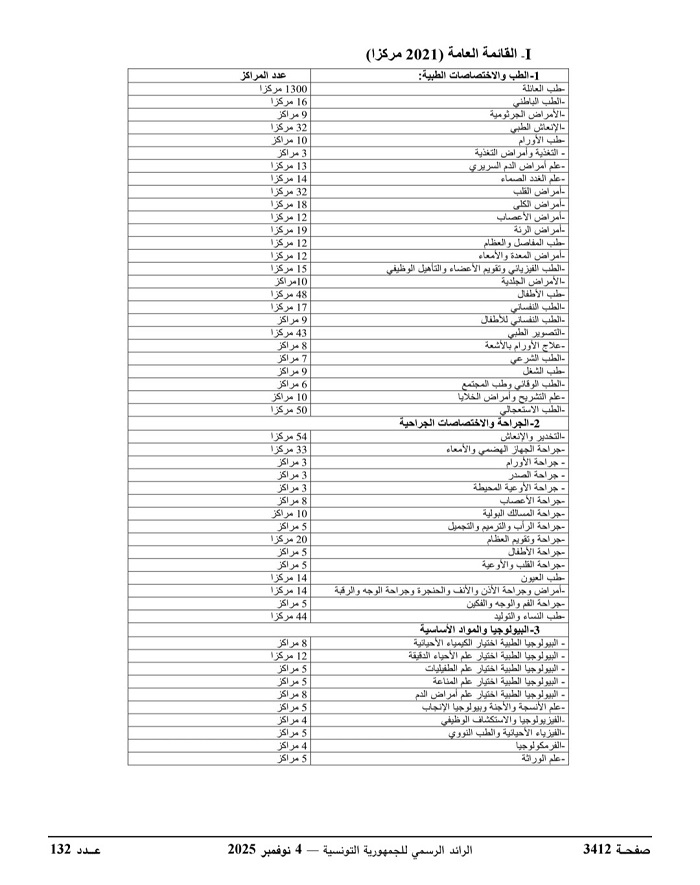 I- القائمة العامة (2021 مركزا)
1-الطب والاختصاصات الطبية: عدد المراكز
-طب العائلة 1300 مركزا
-الطب الباطني 16 مركزا
-الأمراض الجرثومية 9 مراكز
-الإنعاش الطبي 32 مركزا
-طب الأورام 10 مراكز
- التغذية وأمراض التغذية 3 مراكز
-علم أمراض الدم السريري 13 مركزا
-علم الغدد الصماء 14 مركزا
-أمراض القلب 32 مركزا
-أمراض الكلى 18 مركزا
-أمراض الأعصاب 12 مركزا
-أمراض الرئة 19 مركزا
-طب المفاصل والعظام 12 مركزا
-أمراض المعدة والأمعاء 12 مركزا
-الطب الفيزيائي وتقويم الأعضاء والتأهيل الوظيفي 15 مركزا
-الأمراض الجلدية 10مراكز
-طب الأطفال 48 مركزا
-الطب النفساني 17 مركزا
-الطب النفساني للأطفال 9 مراكز
-التصوير الطبي 43 مركزا
-علاج الأورام بالأشعة 8 مراكز
-الطب الشرعي 7 مراكز
-طب الشغل 9 مراكز
-الطب الوقائي وطب المجتمع 6 مراكز
-علم التشريح وأمراض الخلايا 10 مراكز
-الطب الاستعجالي 50 مركزا
2-الجراحة والاختصاصات الجراحية
-التخدير والإنعاش 54 مركزا
-جراحة الجهاز الهضمي والأمعاء 33 مركزا
- جراحة الأورام 3 مراكز
- جراحة الصدر 3 مراكز
- جراحة الأوعية المحيطة 3 مراكز
-جراحة الأعصاب 8 مراكز
-جراحة المسالك البولية 10 مراكز
-جراحة الرأب والترميم والتجميل 5 مراكز
-جراحة وتقويم العظام 20 مركزا
-جراحة الأطفال 5 مراكز
-جراحة القلب والأوعية 5 مراكز
-طب العيون 14 مركزا
-أمراض وجراحة الأذن والأنف والحنجرة وجراحة الوجه والرقبة 14 مركزا
-جراحة الفم والوجه والفكين 5 مراكز
-طب النساء والتوليد 44 مركزا
3-البيولوجيا والمواد الأساسية
- البيولوجيا الطبية اختيار الكيمياء الأحيائية 8 مراكز
- البيولوجيا الطبية اختيار علم الأحياء الدقيقة 12 مركزا
- البيولوجيا الطبية اختيار علم الطفيليات 5 مراكز
- البيولوجيا الطبية اختيار علم المناعة 5 مراكز
- البيولوجيا الطبية اختيار علم أمراض الدم 8 مراكز
-علم الأنسجة والأجنة وبيولوجيا الإنجاب 5 مراكز
-الفيزيولوجيا والاستكشاف الوظيفي 4 مراكز
-الفيزياء الأحيائية والطب النووي 5 مراكز
-الفرمكولوجيا 4 مراكز
-علم الوراثة 5 مراكز
صفحـة 3412 الرائد الرسمي للجمهورية التونسية — 4 نوفمبر 2025 عـــدد 132